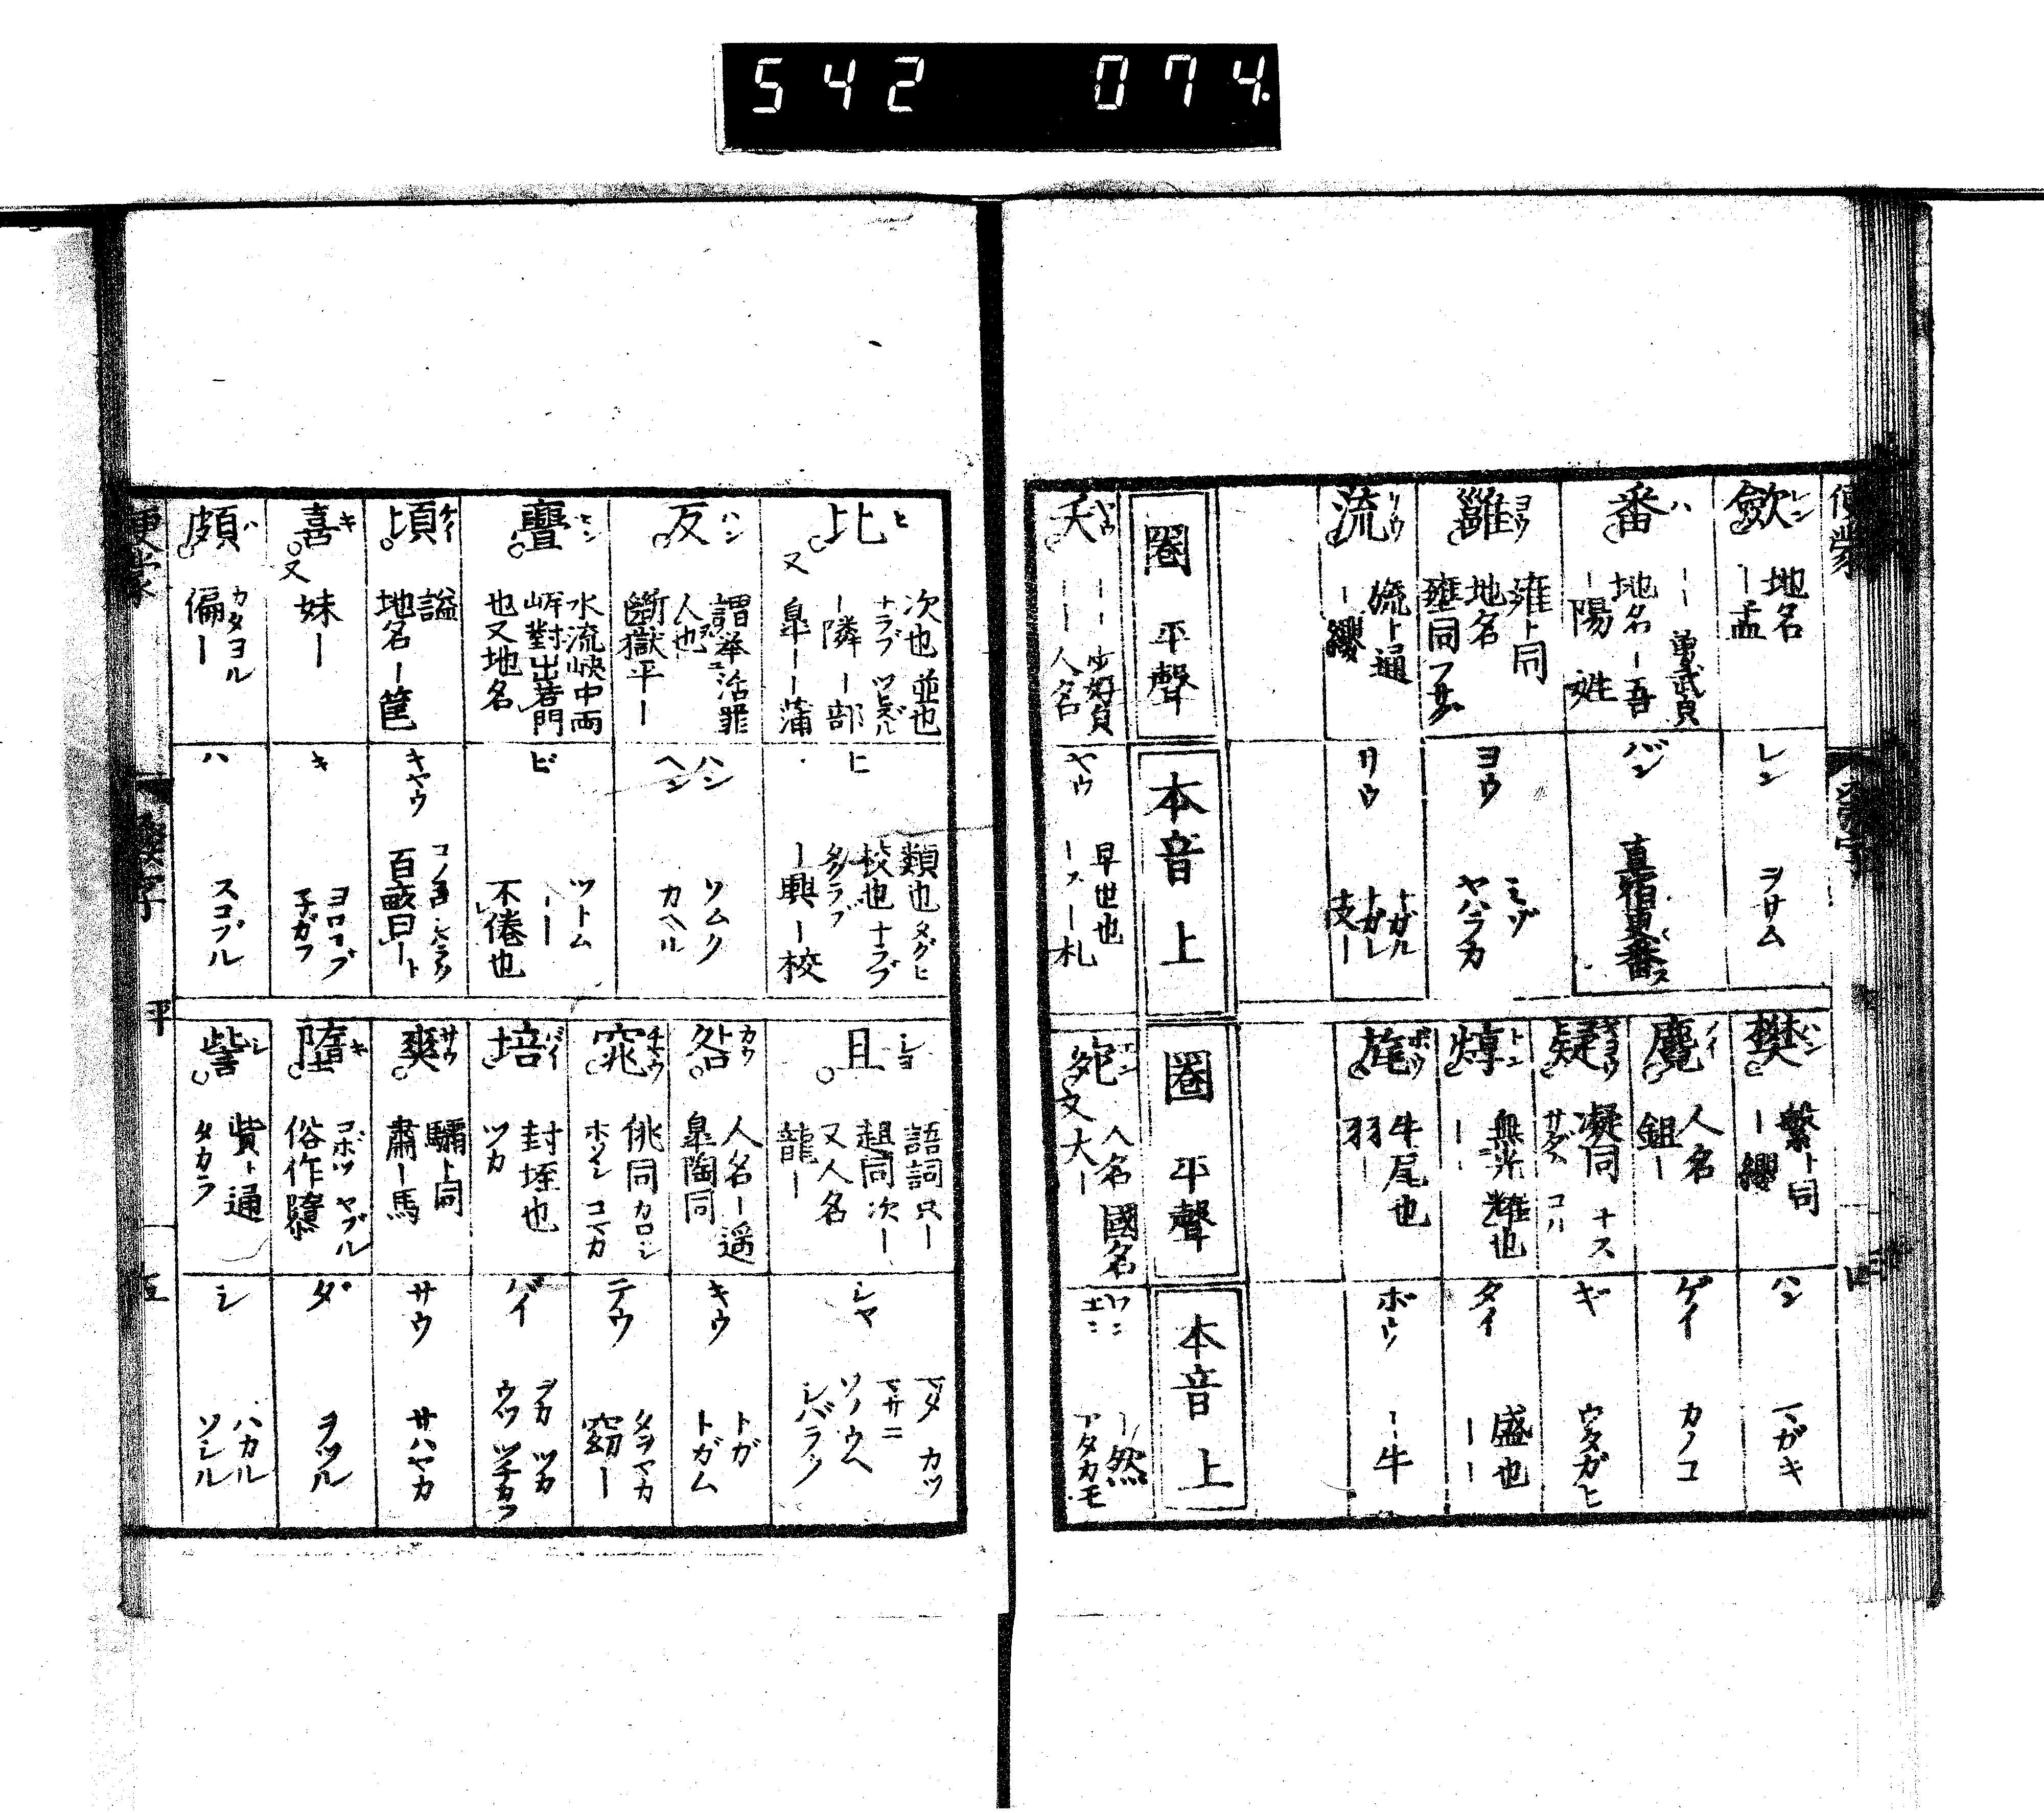 542 074.
歛 レン
地名
ー孟
レン
ヲサム
番 ハ
地名ー吾
ー陽 姓
ハン
雝 ヨウ
雍ト同
地名
壅同フサグ
ヨウ
ミヅ
ヤハラカ
流 リウ
旒ト通
ー纓
リウ
ナガル
ナガレ
支ー
樊 ハン
繁ト同
ー纓
ハン
マガキ
麑 ゲイ
人名
鉏ー
ゲイ
カノコ
疑 ギヨウ
凝同 ナス
サダム コル
ギ
ウタガヒ
焞 トン
無光耀也
ーー
タイ
盛也
ーー
旄 ボウ
牛尾也
羽ー
ボウ
ー牛
圏 平聲
本音 上
圏 平聲
本音 上
夭 ヤウ
ーー少好貌
ーー人名
ヤウ
早世也
ースー札
人名 國名
又大ー
ー然
アタカモ
比 ヒ
次也並也
ー隣ー部
又 皐ーー蒲
ヒ
類也 タグヒ
校也 ナラブ
ー興ー校
反 ハン
謂擧活罪
人也
斷獄平ー
ハン
ヘン
ソムク
カヘル
亹
水流峽中兩
岸對出若門
也又地名
ビ
ツトム
ーー
不倦也
頃 ケイ
謚
地名ー筐
キヤウ
百畝曰ート
喜 キ
又 妹ー
キ
ヨロコブ
子ガフ
頗 ハ
カタヨル
偏ー
ハ
スコブル
且 シヨ
語詞只ー
趄同次ー
又人名
龍ー
シヤ
マタ カツ
マサニ
シバラク
咎 カウ
人名ー遥
皐陶同
キウ
トガ
トガム
窕 チヤウ
佻同カロシ
テウ
タヲヤカ
窈ー
培 バイ
封垤也
ツカ
バイ
爽 サウ
驦ト同
肅ー馬
サウ
サハヤカ
墮 キ
コボツ ヤブル
俗作隳
ダ
ヲツル
訾 シ
貲ト通
タカラ
シ
ハカル
ソシル
平
五